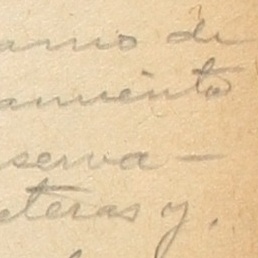 arrio de
amiento
serva -
eteras y.